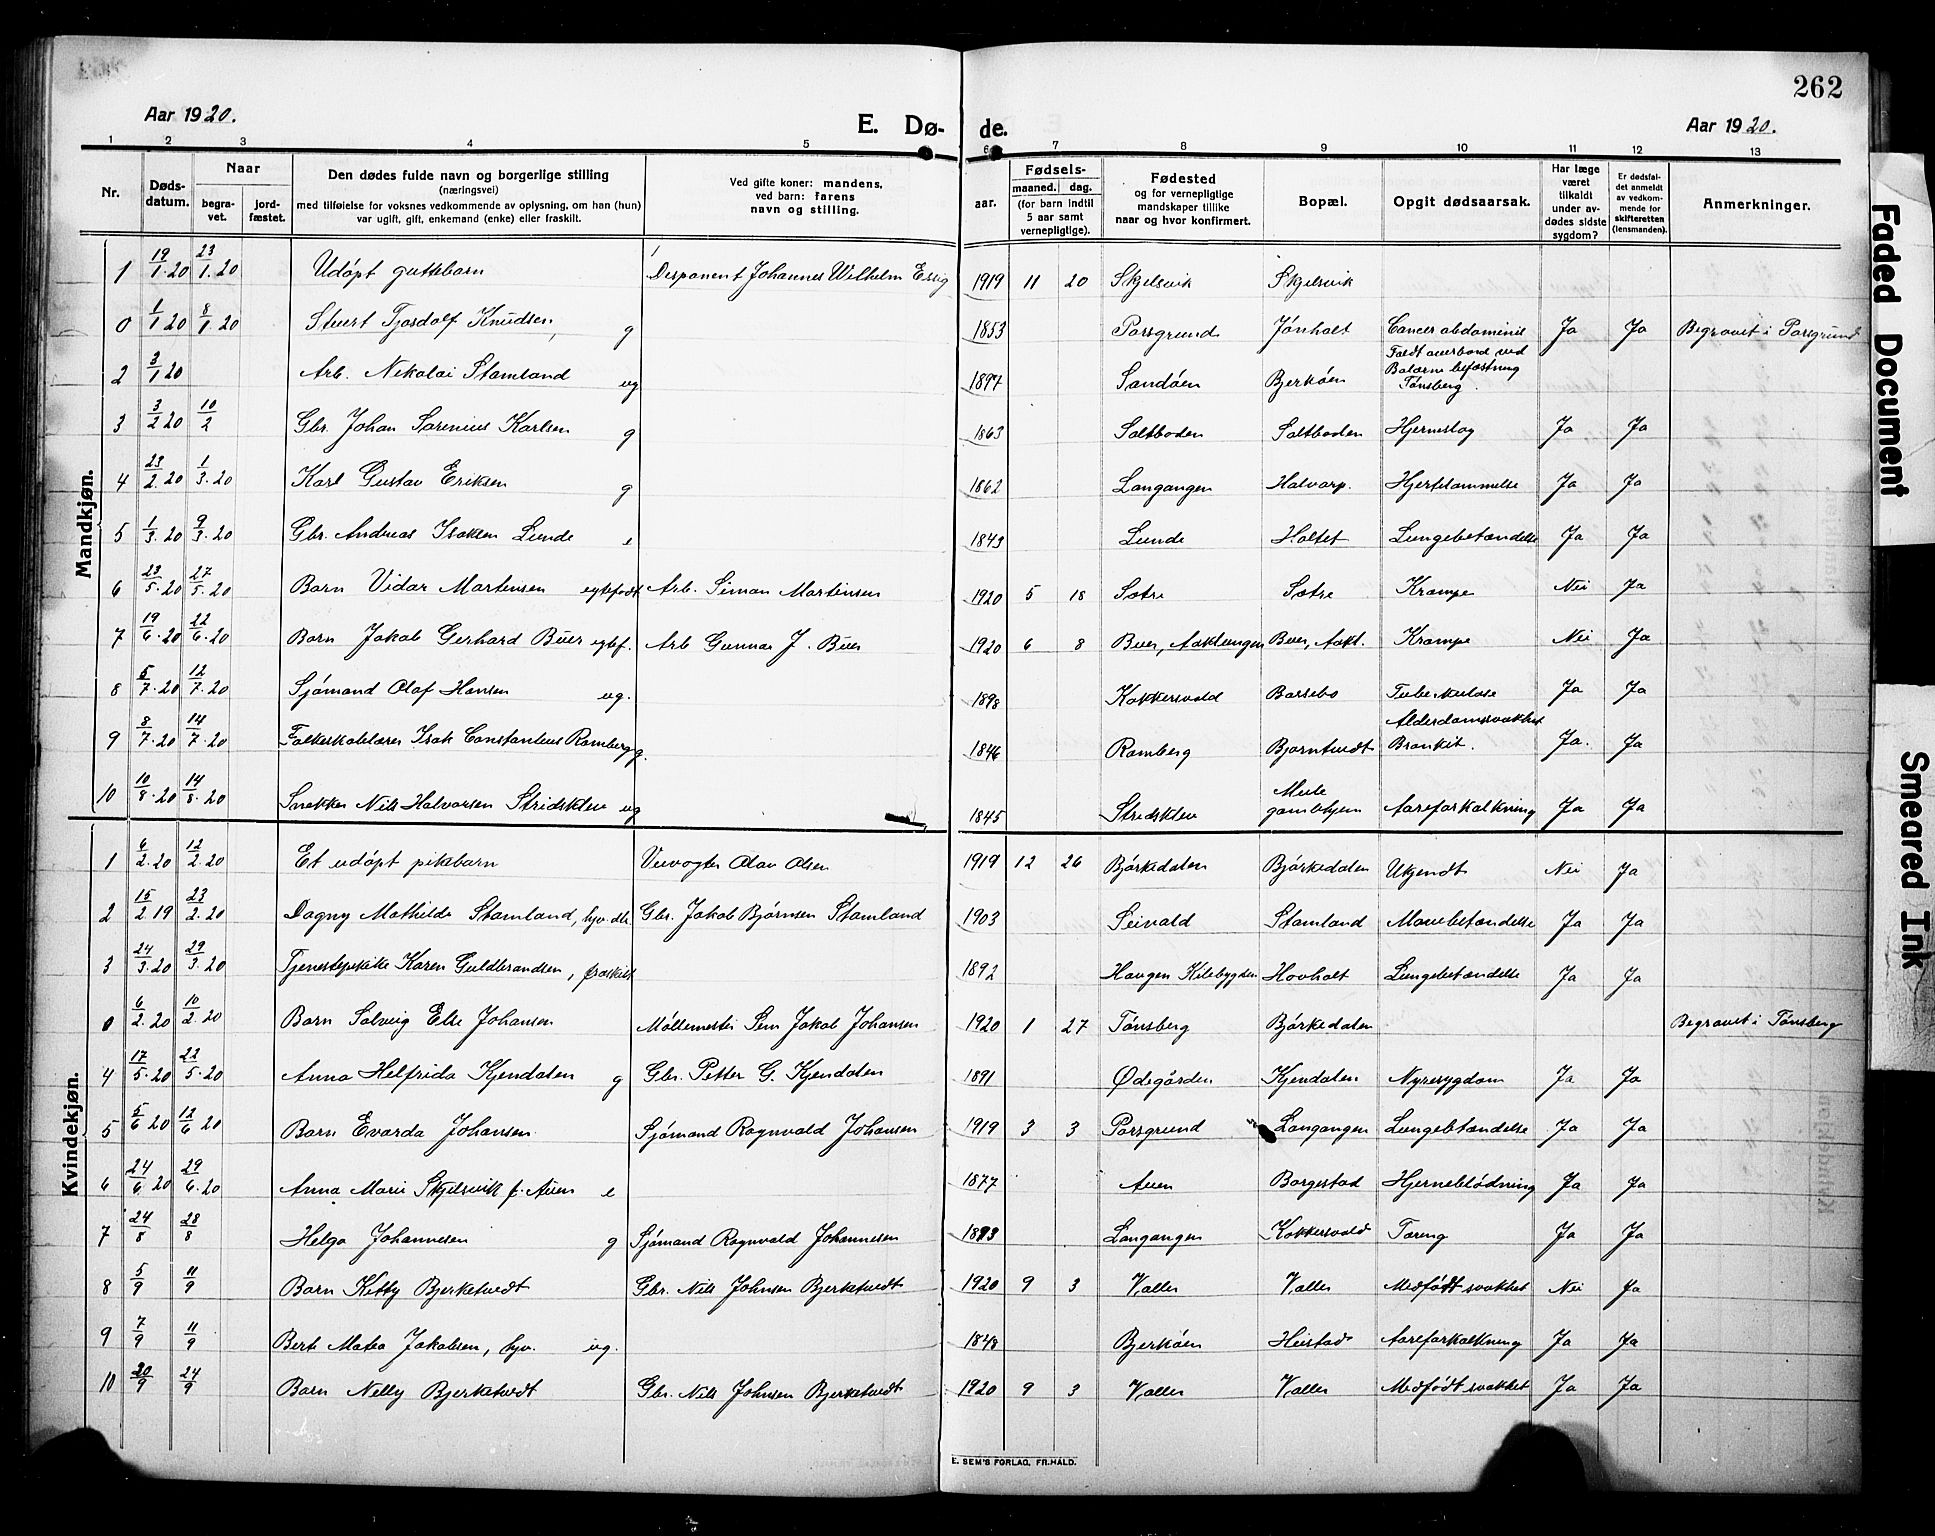 262
Aar 1920.
E. Dø-
de.
Aar 1920.
1 2 3 4 5 6 7 8 9 10 11 12 13
Nr.
Døds-
datum.
Naar
begra-
vet.
jord-
fæstet.
Den dødes fulde navn og borgerlige stilling
(næringsvei)
med tilføielse for voksnes vedkommende av oplysning, om han (hun)
var ugift, gift, enkemand (enke) eller fraskilt.
Ved gifte koner: mandens,
ved barn: farens
navn og stilling.
aar.
Fødsels-
maaned. dag.
(for barn indtil
5 aar samt
vernepligtige).
Fødested
og for vernepligtige
mandskaper tillike
naar og hvor konfirmert.
Bopæl.
Opgit dødsaarsak.
Har læge
været
tilkaldt
under av-
dødes sidste
sygdom?
Er dødsfal-
det anmeldt
av vedkom-
mende for
skifteretten
(lensmanden).
Anmerkninger.
Mandkjøn.
1 19/1.20 23/1.20 Udøpt guttebarn Disponent Johannes Wilhelm Essig 1919 11 20 Skjelsvik Skjelsvik
0 1/1 20 8/1.20 Stuert Tjosdolf Knudsen, g 1853 Porsgrund Jønholt Cancer abdominis Ja Ja Begravet i Porsgrund
2 3/1 20 Arb. Nikolai Stamland ug 1897 Sandøen Bjerkøen Faldt overbord ved
Bolærne befæstning
Tønsberg.
3 3/2 20 10/2 Gbr. Johan Sørenius Karlsen g 1863 Saltboden Saltboden Hjerneslag Ja Ja
4 23/2.20 1/3.20 Karl Gustav Eriksen g 1862 Langangen Halvarp. Hjertelammelse Ja Ja
5 1/3.20 9/3.20 Gbr. Andreas Isaksen Lunde e 1843 Lunde Holtet Lungebetændelse Ja Ja
6 23/5.20 27/5.20 Barn Vidar Martinsen egtefødt Arb. Simon Martinsen 1920 5 18 Sætre Sætre Krampe Nei Ja
7 19/6.20 22/6.20 Barn Jakob Gerhard Buer egtef. Arb Gunnar J. Buer 1920 6 8 Buer, Aaklungen Buer, Aakl. Krampe Nei Ja
8 5/7.20 12/7.20 Sjømand Olaf Hansen ug. 1898 Kokkersvold Bassebo Tuberkulose Ja Ja
9 8/7.20 14/7.20 Folkeskolelærer Isak Constantius Ramberg g. 1846 Ramberg Bjørntvedt Alderdomssvakhet
Bronkit. Ja. Ja
10 10/8.20 14/8.20 Snekker Nils Halvorsen Stridsklev ug 1845 Stridsklev Mule
gamlehjem Aareforkalkning Ja Ja
Kvindekjøn.
1 6/2.20 12/2.20 Et udøpt pikebarn Veivogter Olav Olsen 1919 12 26 Bjørkedalen Bjørkedalen Ukjendt Nei Ja
2 15/2 19 23/2.20 Dagny Mathilde Stamland, hjv. dtr. Gbr. Jakob Bjørnsen Stamland 1903 Seivald Stamland Mavebetændelse Ja Ja
3 24/3.20 29/3.20 Tjenestepike Karen Guldbrandsen, fraskilt 1892 Haugen Kilebygden Hovholt Lungebetændelse Ja Ja
0 6/2.20 10/2.20 Barn Solveig Else Johansen Møllemester Sem Jakob Johansen 1920 1 27 Tønsberg Bjørkedalen Begravet i Tønsberg
4 17/5.20 22/5.20 Anna Helfrida Kjendalen g Gbr. Petter G. Kjendalen 1891 Ødegården Kjendalen Nyresygdom Ja Ja
5 5/6 20 12/6 20 Barn Evarda Johansen Sjømand Ragnvald Johansen 1919 3 3 Porsgrund Langangen Lungebetændelse Ja Ja
6 24/6.20 29/6.20 Anna Marie Skjelsvik f. Auen e 1877 Auen Borgestad Hjerneblødning Ja Ja
7 24/8 28/8 Helga Johannesen g Sjømand Ragnvald Johannesen 1893 Langangen Kokkersvold Tæring Ja Ja
8 5/9 11/9 Barn Kitty Bjerketvedt Gbr. Nils Johnsen Bjerketvedt 1920 9 3 Valler Valler Medfødt svakhet Nei Ja
9 7/9 11/9 Berte Matea Jakobsen, hjv. ug. 1848 Bjerkøen Heistad Aareforkalkning Ja Ja
10 20/9 24/9 Barn Nelly Bjerketvedt Gbr. Nils Johnsen Bjerketvedt 1920 9 3 Valler Valler Medfødt svakhet Ja Ja
E. SEM'S FORLAG, FR.HALD.
Faded Document
Smeared Ink